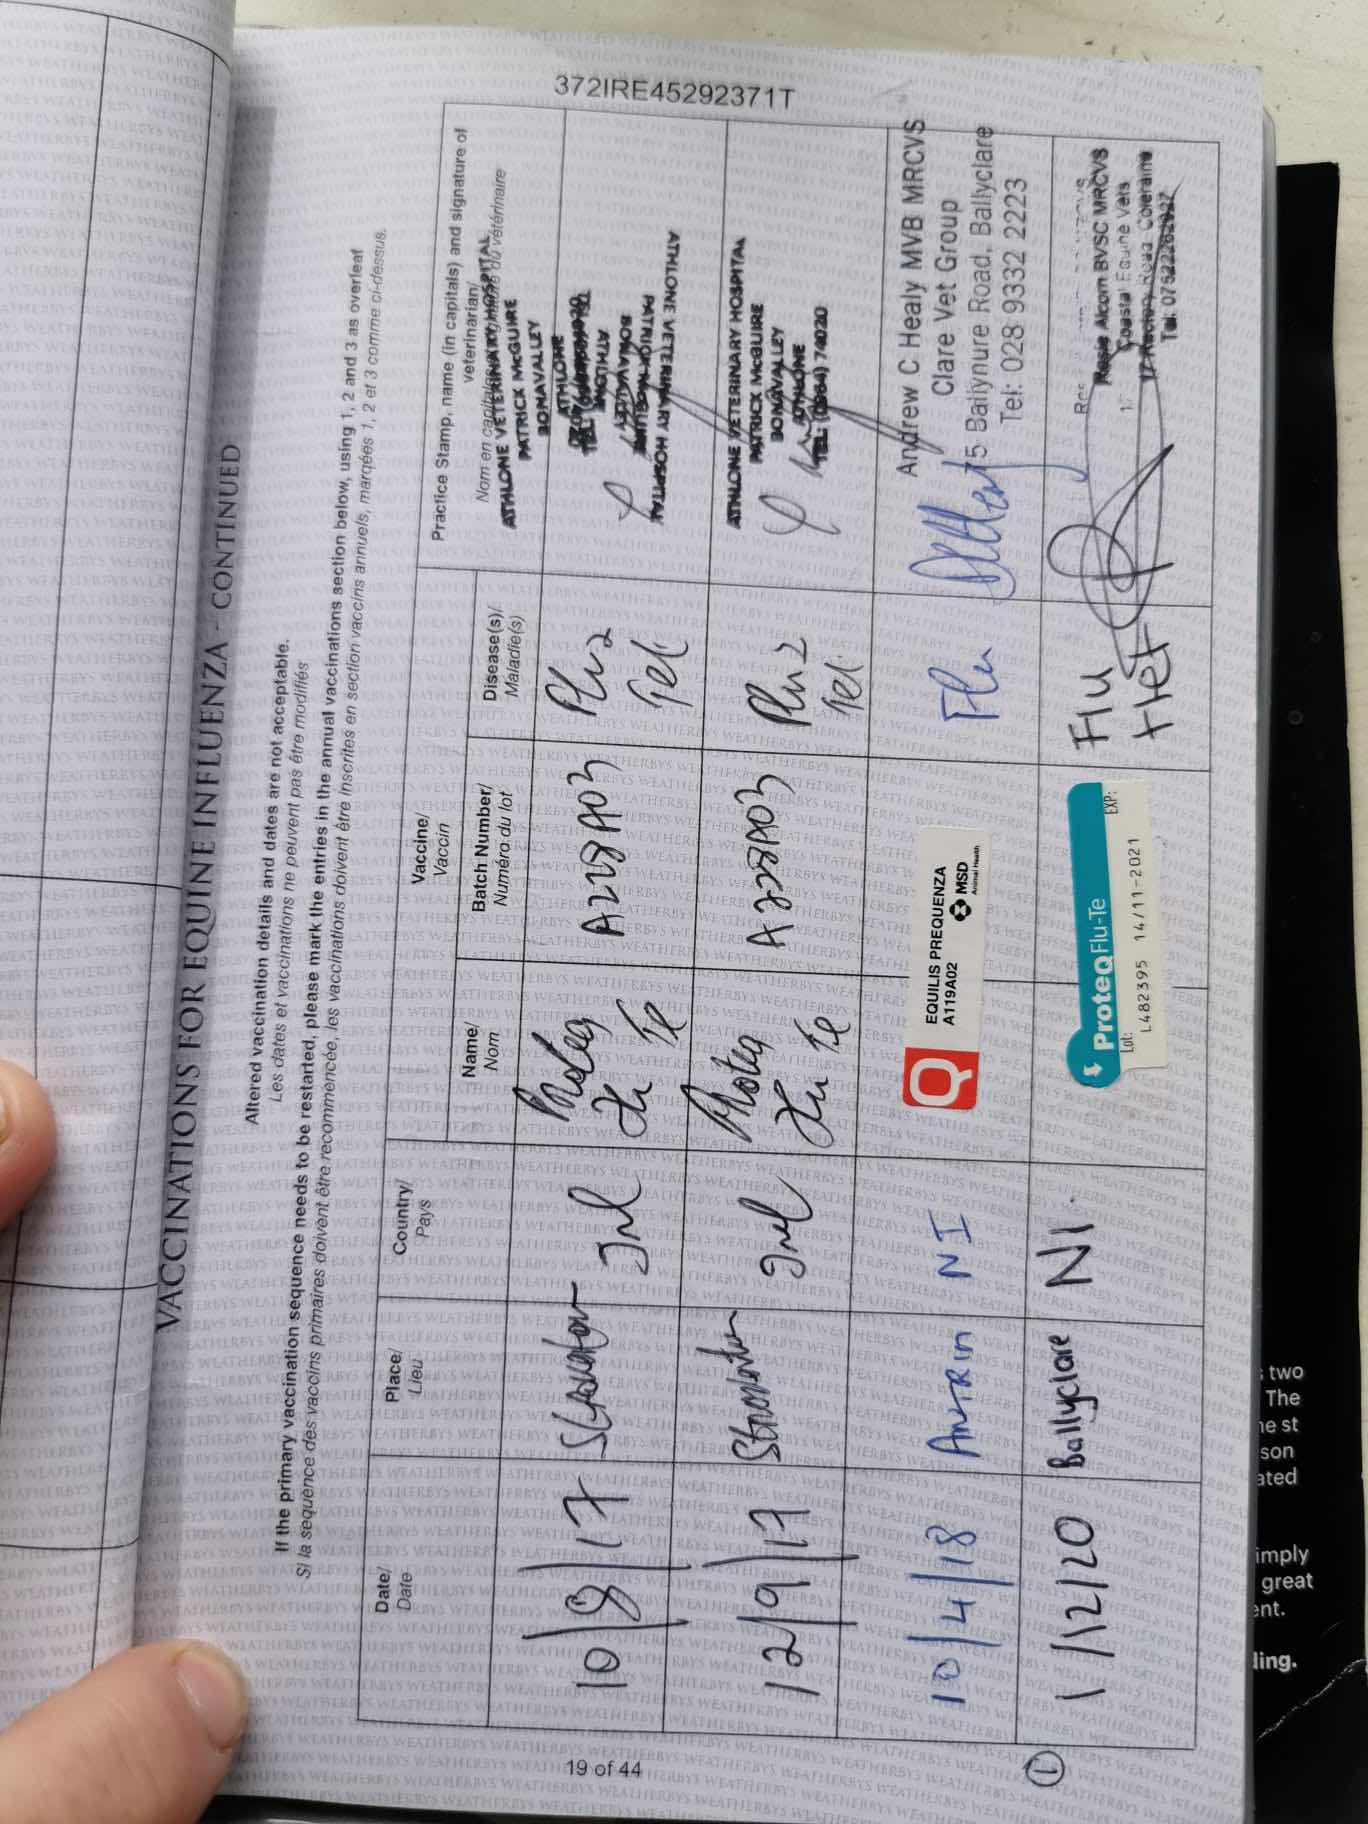 372IRE45292371T
VACCINATIONS FOR EQUINE INFLUENZA - CONTINUED
Altered vaccination details and dates are not acceptable.
Les dates et vaccinations ne peuvent pas être modifiés
If the primary vaccination sequence needs to be restarted, please mark the entries in the annual vaccinations section below, using 1, 2 and 3 as overleaf
Si la sequence des vaccins primaires doivent être recommencée, les vaccinations doivent être inscrites en section vaccins annuels, marqées 1, 2 et 3 comme ci-dessus.
Date/
Date
Place/
Lieu
Country/
Pays
Vaccine/
Vaccin
Name/
Nom
Batch Number/
Numéro du lot
Disease(s)/
Maladie(s)
Practice Stamp, name (in capitals) and signature of
veterinarian/
Nom en capitales et signature du vétérinaire
10/8/17
Irl
Proteq
Flu Te
A228A03
Flu 2
Tet
ATHLONE VETERINARY HOSPITAL
PATRICK McGUIRE
BONAVALLEY
ATHLONE
ATHLONE VETERINARY HOSPITAL
PATRICK McGUIRE
BONAVALLEY
ATHLONE
12/9/17
Irl
Proteq
Flu Te
A228A03
Flu 2
Tet
ATHLONE VETERINARY HOSPITAL
PATRICK McGUIRE
BONAVALLEY
ATHLONE
10/4/18
ANTRIM
NI
EQUILIS PREQUENZA
A119A02
MSD
Animal Health
Flu
Andrew C Healy MVB MRCVS
Clare Vet Group
Ballynure Road, Ballyclare
Tel: 028 9332 2223
1
1/12/20
Ballyclare
NI
ProteqFlu-Te
Lot:
EXP:
L482395 14/11-2021
Flu
Tet
Rosie Alcorn BVSC MRCVS
Coastal Equine Vets
Coleraine
19 of 44
two
The
son
ated
imply
great
ent.
ding.